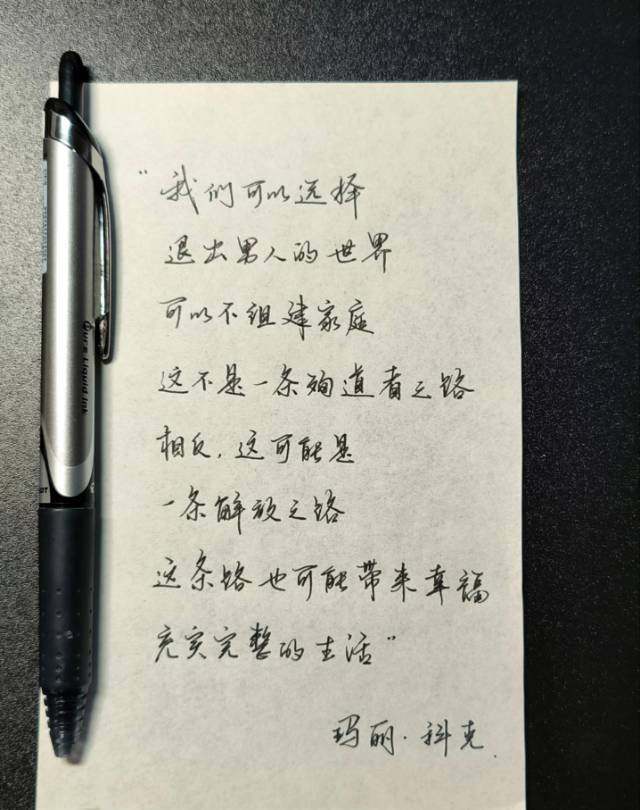 “我们可以选择
退出男人的世界
可以不组建家庭
这不是一条殉道者之路
相反，这可能是
一条解放之路
这条路也可能带来幸福
充实完整的生活”
玛丽·科克
Liquid Ink